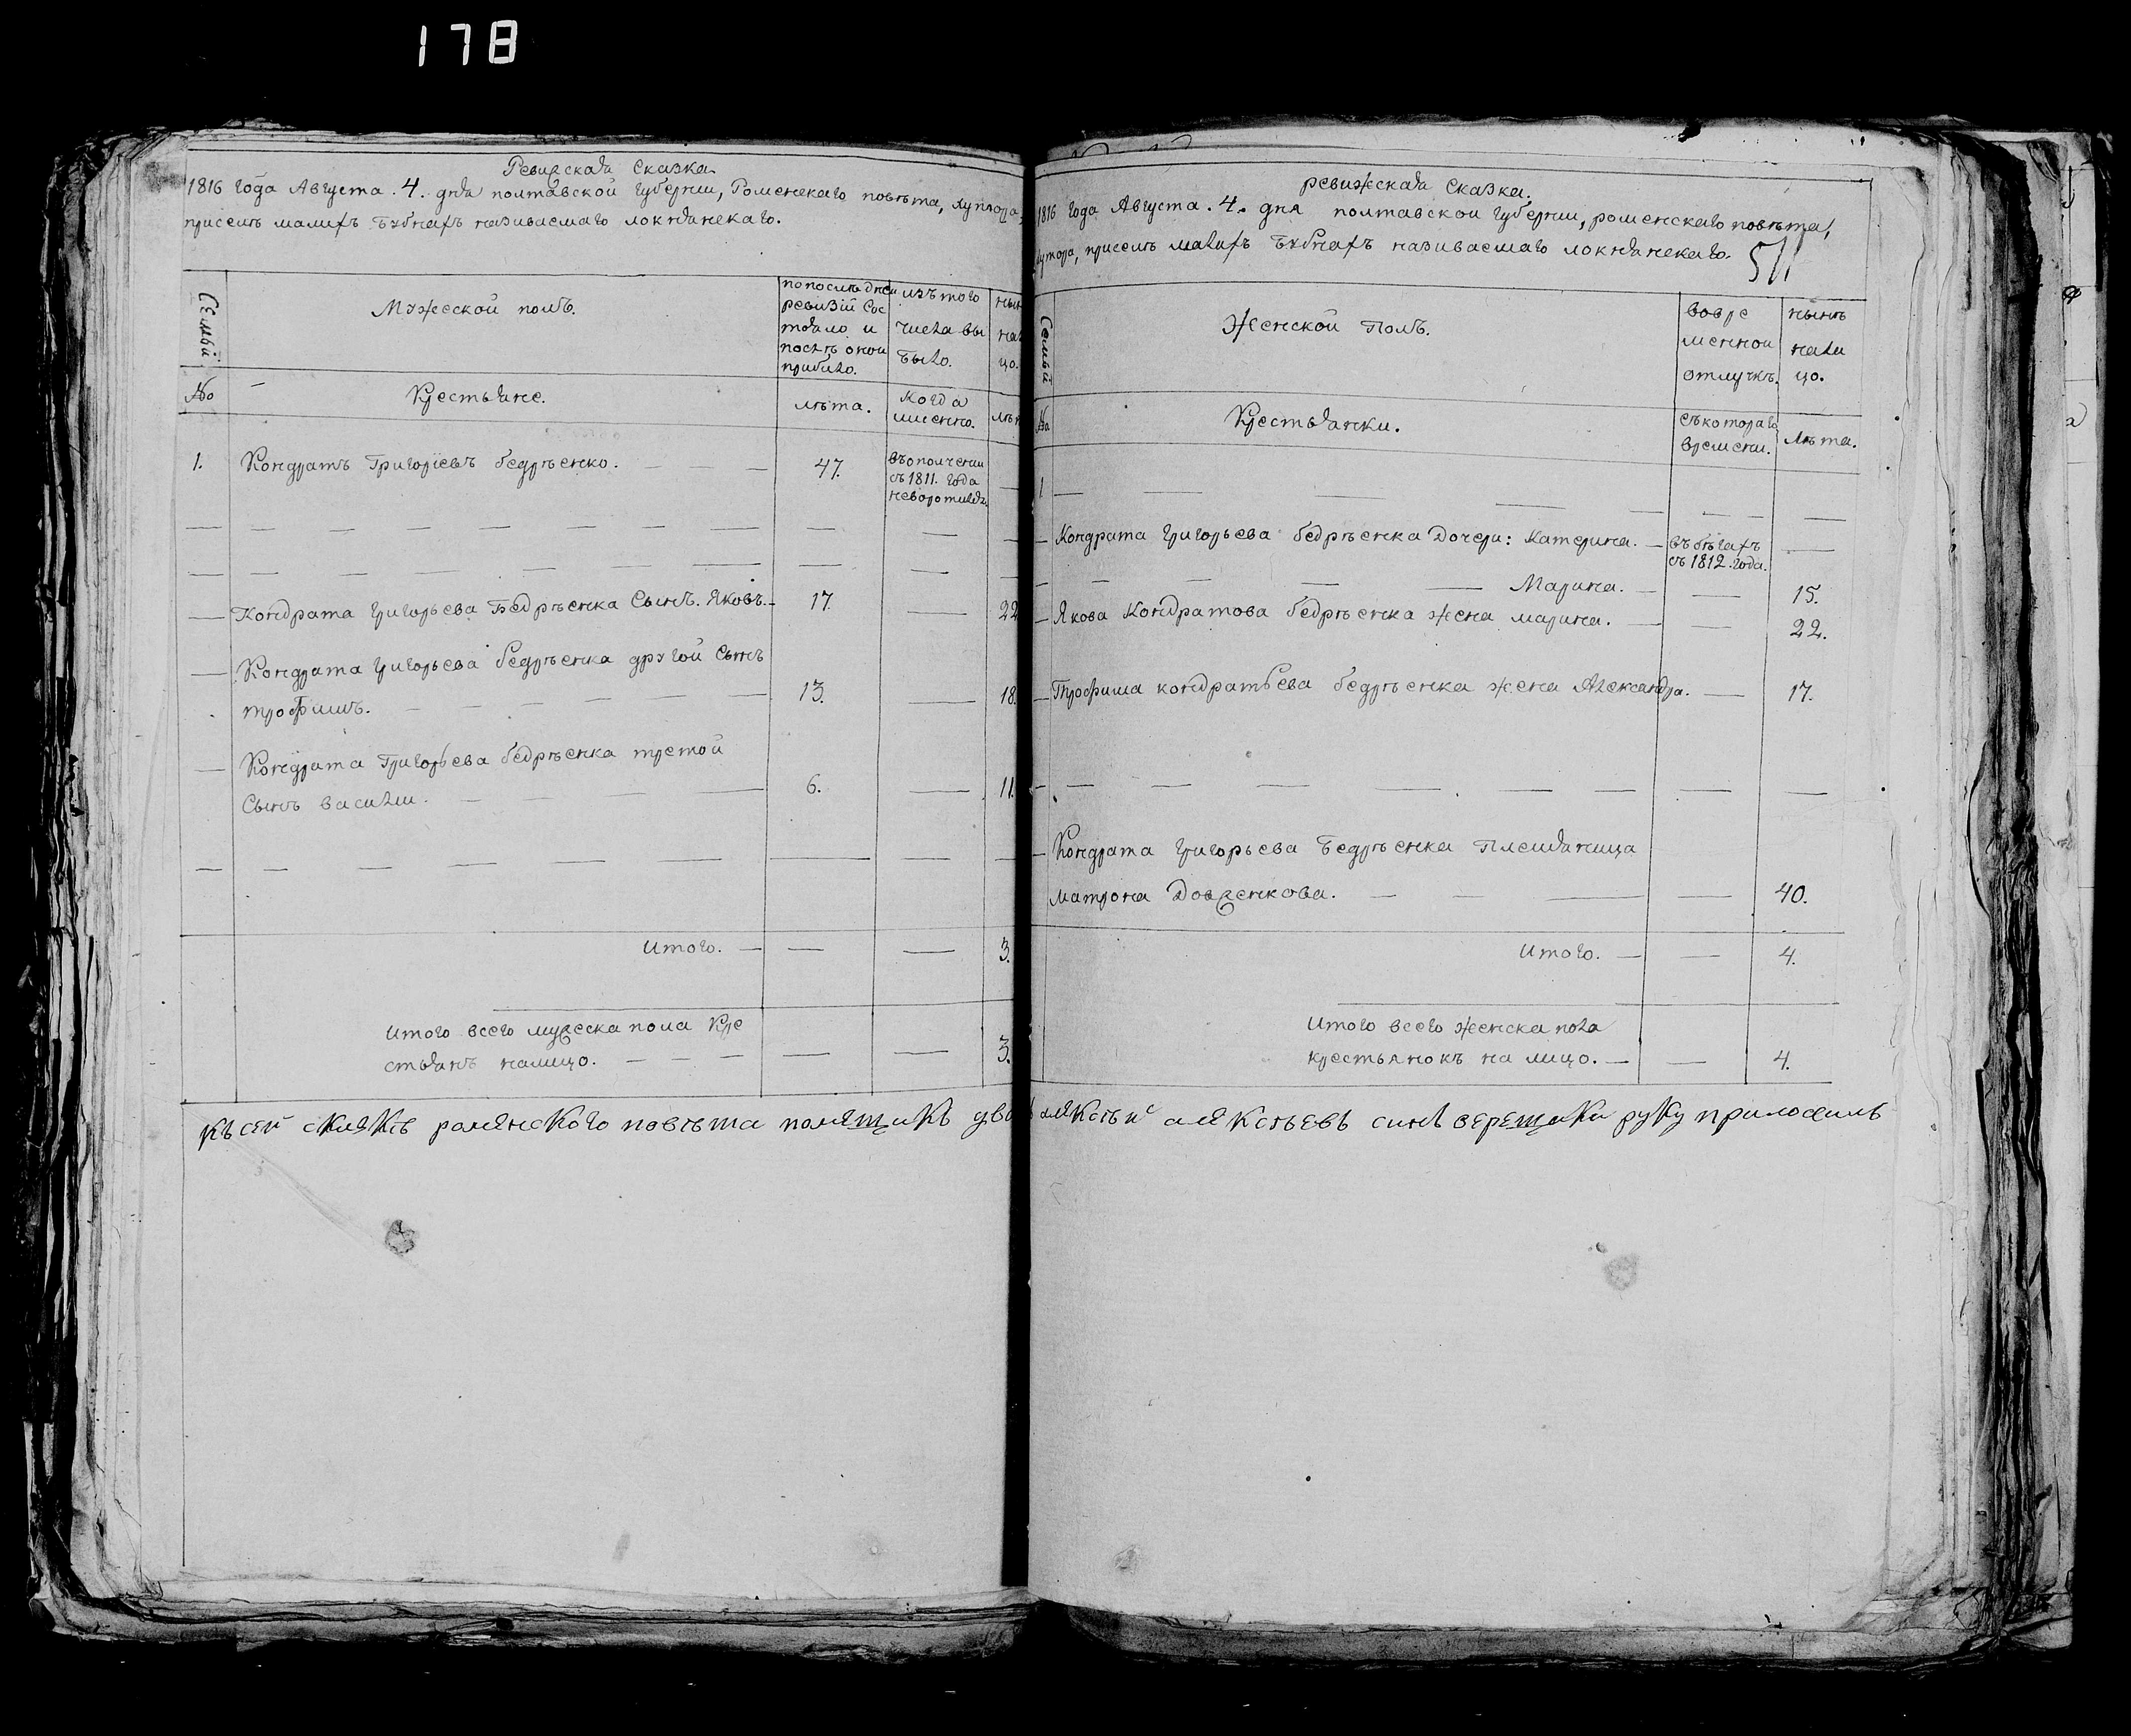 178
Ревизская Сказка
1816 года Августа .4. дня полтавской губернии, Роменскаго повѣта, хутора,
приселѣ малихъ Бубнахъ називаемаго локнянскаго.
Семьи
Мужеской полъ.
попоследней
ревизіи Сос
тояло и
послѣ оной
прибыло.
изъ того
числа вы
было.
нын
на
цо.
№
Крестьяне.
лѣта.
когда
именно.
лѣт
1. Кондратъ Григоріевъ бедрѣенко. — — — 47. въополчении
съ 1811. года
неворотился.
Кондрата Григорьева Бедрѣенка Сынъ. Яковъ. 17. — 22
Кондрата Григорьева бедрѣенка другой Сынъ
трофимъ. — — — — — 13. — 18.
Кондрата Григорьева бедрѣенка третой
Сынъ василий. — — — — 6. — 11.
Итого. — — — 3.
Итого всего мужеска пола Кре
стьянъ налицо. — — — — — 3.
къ сей скаяке ромѣнского повѣта помящикъ
ревижская Сказка.
1816 года Августа .4. дня полтавской губернии, роменскаго повѣта,
хутора, приселѣ малихъ Бубнахъ називаемаго локнянскаго.
511
Семьи
Женской Полъ.
вовре
менной
отлучкѣ.
нынѣ
нали
цо.
№
Крестьянки.
съкотораго
времени.
лѣта.
1 — — — —
Кондрата Григорьева бедрѣенка Дочери: Катерина. — въ бѣгахъ
съ 1812. года.
Марина. — — 15.
Якова Кондратова бедрѣенка жена марина. — — 22.
Трофима кондратьева бедрѣенка жена Александра. — 17.
Кондрата Григорьева Бедрѣенка Племяница
матрона Довженкова. — — — — 40.
Итого. — — 4.
Итого всего женска пола
крестьянокъ на лицо. — — 4.
алѣксѣй алѣксѣевъ синъ верещака руку приложилъ